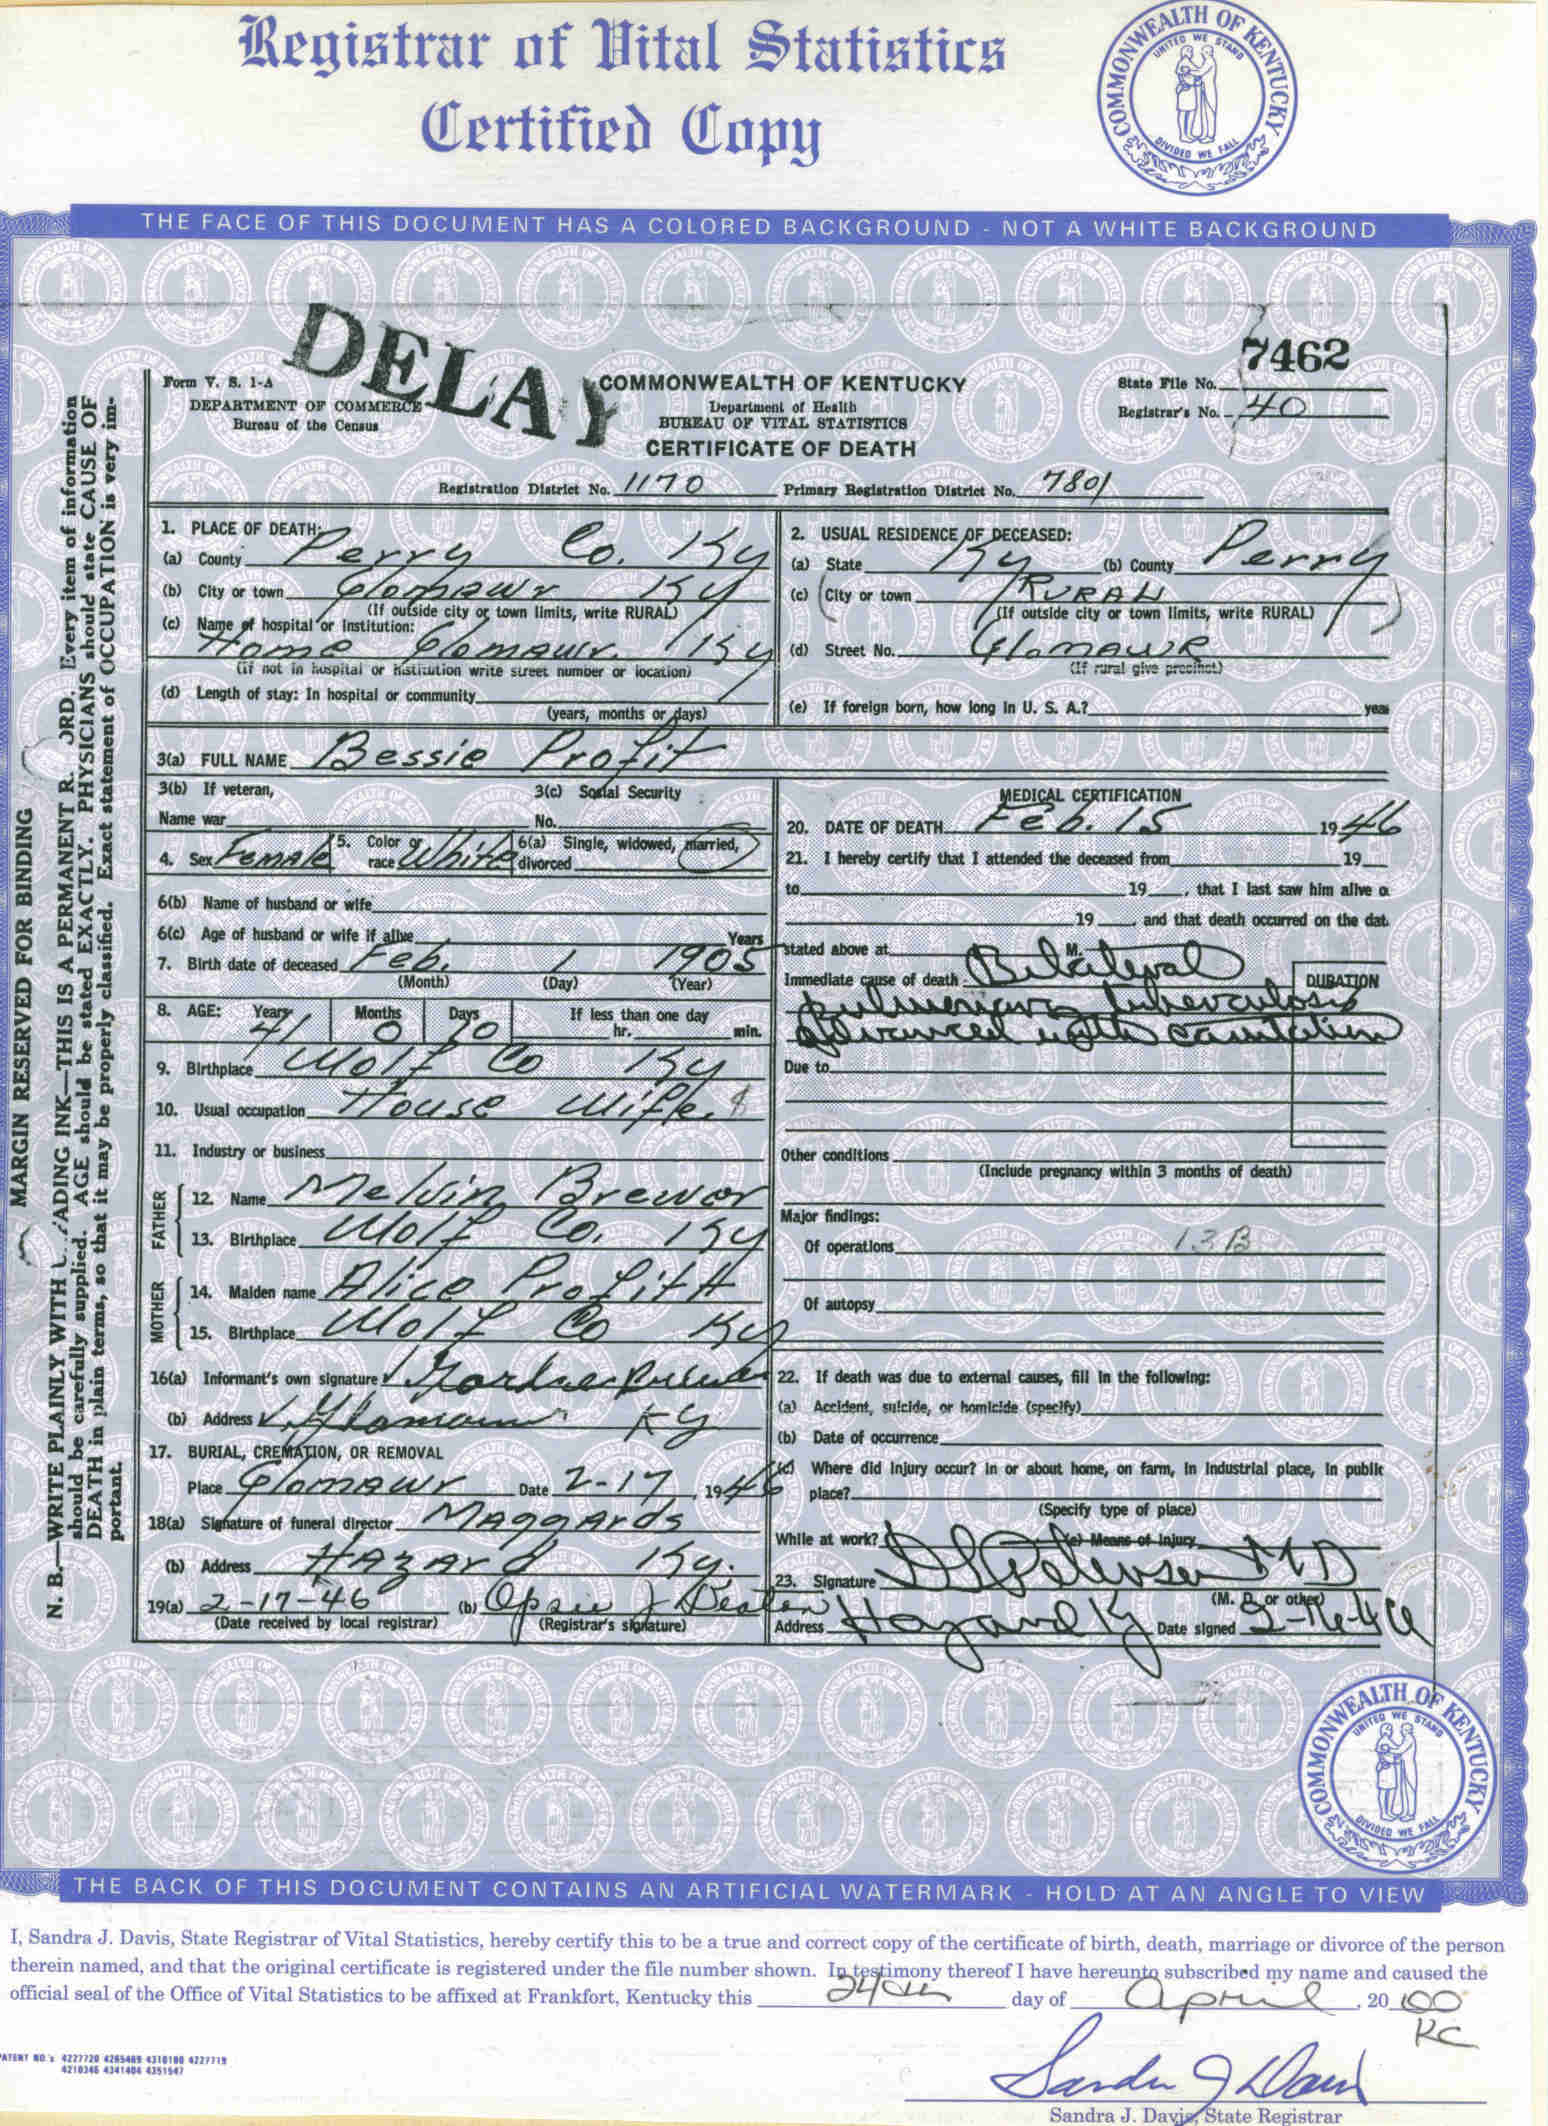 Registrar of Vital Statistics
Certified Copy
COMMONWEALTH OF KENTUCKY
UNITED WE STAND
DIVIDED WE FALL
THE FACE OF THIS DOCUMENT HAS A COLORED BACKGROUND - NOT A WHITE BACKGROUND
DELAY
7462
Form V. S. 1-A
DEPARTMENT OF COMMERCE
Bureau of the Census
COMMONWEALTH OF KENTUCKY
Department of Health
BUREAU OF VITAL STATISTICS
CERTIFICATE OF DEATH
State File No.
Registrar's No. 40
Registration District No. 1170 Primary Registration District No. 7801
MARGIN RESERVED FOR BINDING
N. B.—WRITE PLAINLY WITH ADING INK—THIS IS A PERMANENT R ORD. Every item of information
should be carefully supplied. AGE should be stated EXACTLY. PHYSICIANS should state CAUSE OF
DEATH in plain terms, so that it may be properly classified. Exact statement of OCCUPATION is very im-
portant.
1. PLACE OF DEATH:
(a) County Perry Co. Ky
(b) City or town Glomawr Ky
(If outside city or town limits, write RURAL)
(c) Name of hospital or institution:
Home Glomawr. Ky
(If not in hospital or institution write street number or location)
(d) Length of stay: In hospital or community
(years, months or days)
2. USUAL RESIDENCE OF DECEASED:
(a) State Ky (b) County Perry
(c) (City or town RURAL )
(If outside city or town limits, write RURAL)
(d) Street No. GlomawR
(If rural give precinct)
(e) If foreign born, how long in U. S. A.? year
3(a) FULL NAME Bessie Profit
3(b) If veteran,
Name war
3(c) Social Security
No.
4. Sex Female 5. Color or race White 6(a) Single, widowed, married, divorced
6(b) Name of husband or wife
6(c) Age of husband or wife if alive Years
7. Birth date of deceased Feb. 1 1905
(Month) (Day) (Year)
8. AGE: Years 41 Months 0 Days 20 If less than one day
hr. min.
9. Birthplace Wolf Co Ky
10. Usual occupation House Wife.
11. Industry or business
FATHER
12. Name Melvin Brewer
13. Birthplace Wolf Co. Ky
MOTHER
14. Maiden name Alice Profitt
15. Birthplace Wolf Co Ky
16(a) Informant's own signature
(b) Address Glomawr Ky
17. BURIAL, CREMATION, OR REMOVAL
Place Glomawr Date 2-17, 1946
18(a) Signature of funeral director Maggards
(b) Address Hazard Ky.
19(a) 2-17-46 (b) Opsie J
(Date received by local registrar) (Registrar's signature)
MEDICAL CERTIFICATION
20. DATE OF DEATH Feb. 15 1946
21. I hereby certify that I attended the deceased from 19
to 19 , that I last saw him alive o
19 , and that death occurred on the dat
stated above at M.
Immediate cause of death Bilateral
pulmonary tuberculosis
advanced with cavitation
DURATION
Due to
Other conditions
(Include pregnancy within 3 months of death)
Major findings:
Of operations 13B
Of autopsy
22. If death was due to external causes, fill in the following:
(a) Accident, suicide, or homicide (specify)
(b) Date of occurrence
(c) Where did injury occur? In or about home, on farm, in industrial place, in public
place?
(Specify type of place)
While at work? (e) Means of injury
23. Signature MD
(M. D. or other)
Address Hazard Ky Date signed 2-16-46
COMMONWEALTH OF KENTUCKY
UNITED WE STAND
DIVIDED WE FALL
THE BACK OF THIS DOCUMENT CONTAINS AN ARTIFICIAL WATERMARK - HOLD AT AN ANGLE TO VIEW
I, Sandra J. Davis, State Registrar of Vital Statistics, hereby certify this to be a true and correct copy of the certificate of birth, death, marriage or divorce of the person
therein named, and that the original certificate is registered under the file number shown. In testimony thereof I have hereunto subscribed my name and caused the
official seal of the Office of Vital Statistics to be affixed at Frankfort, Kentucky this 24th day of April, 20 00
KC
PATENT NO.'s 4227720 4265469 4310180 4227719
4210346 4341404 4351547
Sandra J Davis
Sandra J. Davis, State Registrar